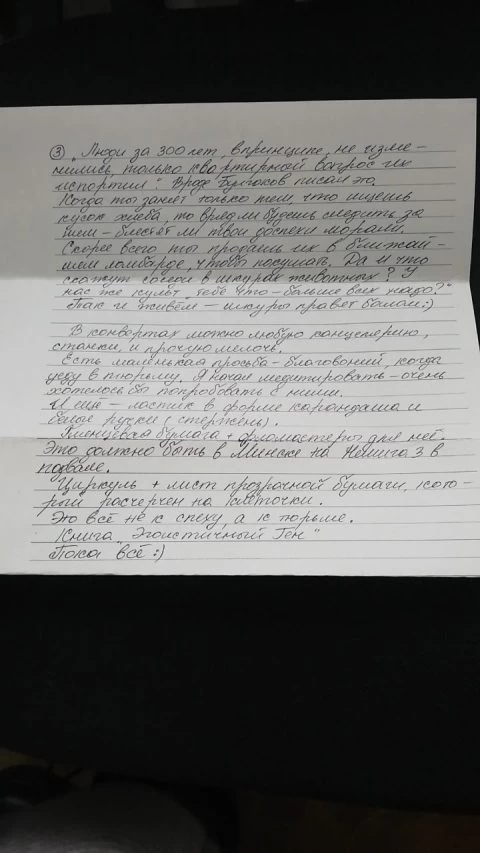 ③ „Люди за 300 лет, впринципе, не изме-
нились, только квартирный вопрос их
испортил." Вроде Булгаков писал это.
Когда ты занят только тем, что ищешь
кусок хлеба, то вряд ли будешь следить за
тем – блестят ли твои доспехи морали.
Скорее всего ты продашь их в ближай-
шем ломбарде, чтоб покушать. Да и что
скажут соседи в шкурах животных? У
нас же культ „тебе что – больше всех надо?"
Так и живём – шкуры правят балом :)
В конвертах можно любую канцелярию,
станки, и прочую мелочь.
Есть маленькая просьба – благовоний, когда
уеду в тюрьму. Я начал медитировать – очень
хотелось бы попробовать с ними.
И ещё – ластик в форме карандаша и
белые ручки (стержень).
Глянцевая бумага + фломастеры для неё.
Это должно быть в Минске на Немига 3 в
подвале.
Циркуль + лист прозрачной бумаги, кото-
рый расчерчен на клеточки.
Это всё не к спеху, а к тюрьме.
Книга „Эгоистичный Ген"
Пока всё :)